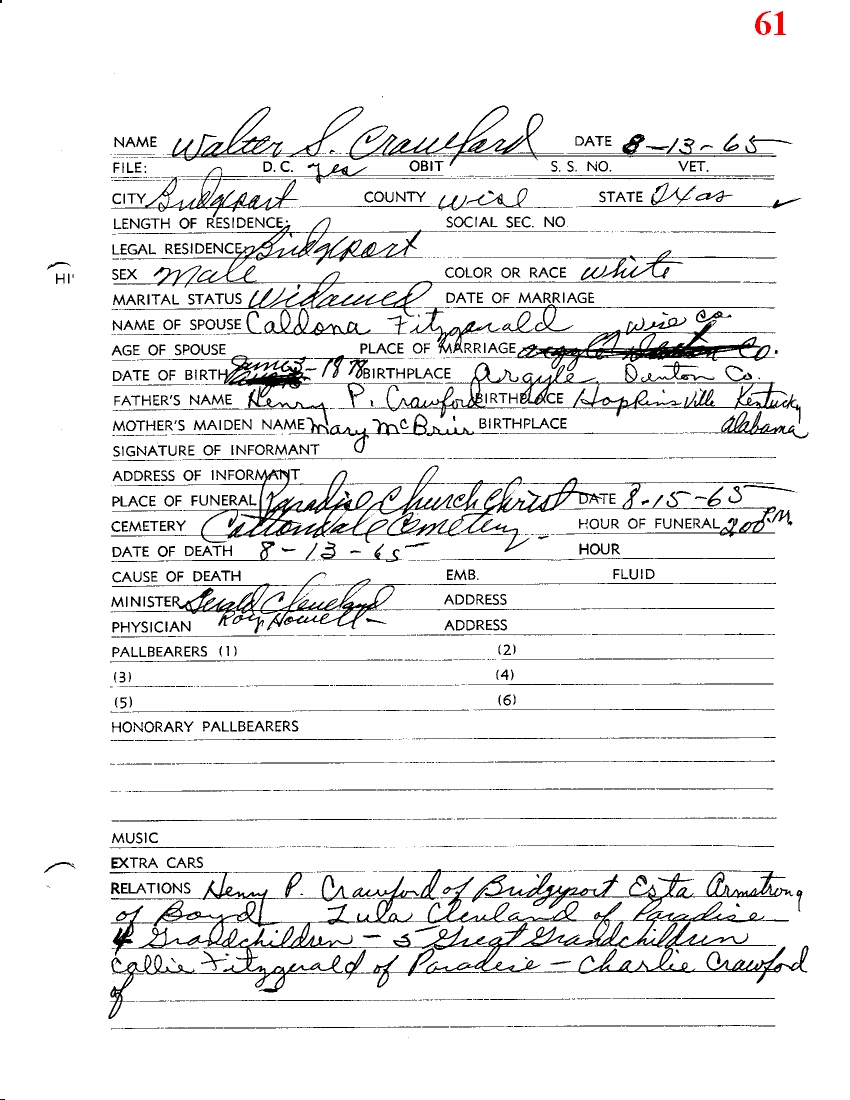 61
NAME Walter S. Crawford DATE 8-13-65
FILE: D.C. yes OBIT S. S. NO. VET.
CITY Bridgeport COUNTY Wise STATE Texas
LENGTH OF RESIDENCE: SOCIAL SEC. NO.
LEGAL RESIDENCE Bridgeport
HI'
SEX Male COLOR OR RACE White
MARITAL STATUS Widowed DATE OF MARRIAGE
NAME OF SPOUSE Caldona Fitzgerald Wise Co.
AGE OF SPOUSE PLACE OF MARRIAGE Co.
DATE OF BIRTH June 3-1878 BIRTHPLACE Argyle, Denton Co.
FATHER'S NAME Henry P. Crawford BIRTHPLACE Hopkinsville Kentucky
MOTHER'S MAIDEN NAME Mary McBrier BIRTHPLACE Alabama
SIGNATURE OF INFORMANT
ADDRESS OF INFORMANT
PLACE OF FUNERAL Paradise Church Christ DATE 8-15-65
CEMETERY Cottondale Cemetery HOUR OF FUNERAL 2:00 P.M.
DATE OF DEATH 8-13-65 HOUR
CAUSE OF DEATH EMB. FLUID
MINISTER Gerald Cleveland ADDRESS
PHYSICIAN Roy Howell ADDRESS
PALLBEARERS (1) (2)
(3) (4)
(5) (6)
HONORARY PALLBEARERS
MUSIC
EXTRA CARS
RELATIONS Henry P. Crawford of Bridgeport Esta Armstrong
of Boyd Lula Cleveland of Paradise
4 Grandchildren - 5 Great Grandchildren
Callie Fitzgerald of Paradise - Charlie Crawford
of